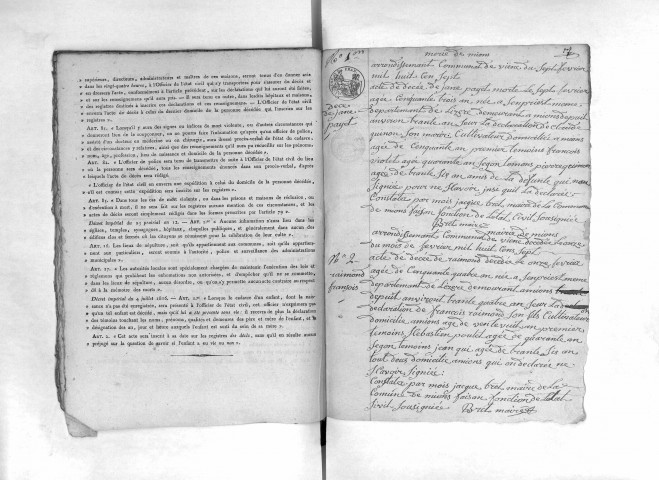 » supérieurs, directeurs, administrateurs et maîtres de ces maisons, seront tenus d'en donner avis
» dans les vingt-quatre heures, à l'Officier de l'état civil qui s'y transportera pour s'assurer du décès et
» en dressera l'acte, conformément à l'article précédent, sur les déclarations qui lui auront été faites,
» et sur les renseignemens qu'il aura pris. — Il sera tenu en outre, dans lesdits hôpitaux et maisons,
» des registres destinés à inscrire ces déclarations et ces renseignemens. — L'Officier de l'état civil
» enverra l'acte de décès à celui du dernier domicile de la personne décédée, qui l'inscrira sur les
» registres ».
ART. 81. « Lorsqu'il y aura des signes ou indices de mort violente, ou d'autres circonstances qui
» donneront lieu de le soupçonner, on ne pourra faire l'inhumation qu'après qu'un officier de police,
» assisté d'un docteur en médecine ou en chirurgie, aura dressé procès-verbal de l'état du cadavre,
» et des circonstances y relatives, ainsi que des renseignemens qu'il aura pu recueillir sur les prénoms,
» nom, âge, profession, lieu de naissance et domicile de la personne décédée ».
ART. 82. « L'officier de police sera tenu de transmettre de suite à l'Officier de l'état civil du lieu
» où la personne sera décédée, tous les renseignemens énoncés dans son procès-verbal, d'après
» lesquels l'acte de décès sera rédigé.
» L'Officier de l'état civil en enverra une expédition à celui du domicile de la personne décédée,
» s'il est connu: cette expédition sera inscrite sur les registres ».
ART. 85. « Dans tous les cas de mort violente, ou dans les prisons et maisons de réclusion, ou
» d'exécution à mort, il ne sera fait sur les registres aucune mention de ces circonstances, et les
» actes de décès seront simplement rédigés dans les formes prescrites par l'article 79 ».
Décret impérial du 23 prairial an 12. — ART. 1er « Aucune inhumation n'aura lieu dans les
» églises, temples, synagogues, hôpitaux, chapelles publiques, et généralement dans aucun des
» édifices clos et fermés où les citoyens se réunissent pour la célébration de leur culte ».
ART. 16. « Les lieux de sépulture, soit qu'ils appartiennent aux communes, soit qu'ils appartien-
» nent aux particuliers, seront soumis à l'autorité, police et surveillance des administrations
» municipales ».
ART. 17. « Les autorités locales sont spécialement chargées de maintenir l'exécution des lois et
» réglemens qui prohibent les exhumations non autorisées, et d'empêcher qu'il ne se commette,
» dans les lieux de sépulture, aucun désordre, ou qu'on s'y permette aucun acte contraire au respect
» dû à la mémoire des morts ».
Décret impérial du 4 juillet 1806. — ART. 1er « Lorsque le cadavre d'un enfant, dont la nais-
» sance n'a pas été enregistrée, sera présenté à l'officier de l'état civil, cet officier n'exprimera pas
» qu'un tel enfant est décédé, mais qu'il lui a été présenté sans vie; il recevra de plus la déclaration
» des témoins touchant les noms, prénoms, qualités et demeures des père et mère de l'enfant, et la
» désignation des an, jour et heure auxquels l'enfant est sorti du sein de sa mère ».
ART. 2. « Cet acte sera inscrit à sa date sur les registres des décès, sans qu'il en résulte aucun
» préjugé sur la question de savoir si l'enfant a eu vie ou non ».
No 1er
mairie de mions
arrondissement Communal de viene du Sept fevrier
mil huit Cen Sept
acte de decé de jane payet morte le Sept fevrier
Decé de jane payet
agée Cenquante troas an née a
departement de demeurant a mions depuit
environ trante an Seur La declaration de Claude
quinon Son marie Cultivateur domicillié a mions
agée de Cenquante an premier temoins francois
violet agée quarante an Segon temoins
age de trante Sis ans de La defunte qui mon
Signée pour ne Scavoir
Constatée par mois jacque brel maire de la Commune
de mions faison fonction de letat Civil Sousignée
Brel maire
mairie de mions
arrondissement Communal de viene decede
du mois de fevrier mil huit Cen Sept
No 2
raimond
francois
acte de decée de raimond decedé le onze fevrier
agée de Cenquante quatre an née a
departement de demeurant amions
depuit environt trante quatre an Seur La
declaration de francois raimond Son fils Cultivateur
domicillié amions age de vente huit an premier
temoins Sebastien agée de quarante an
Segon temoins jean agée de trante Sis an
tout deux domicillie amions qui an declarer ne
Scavoir Signiée
Constatée par mois jacque brel maire de La
Comune de mions faison fonction de Letat
Sivil Sousignée Brel maire